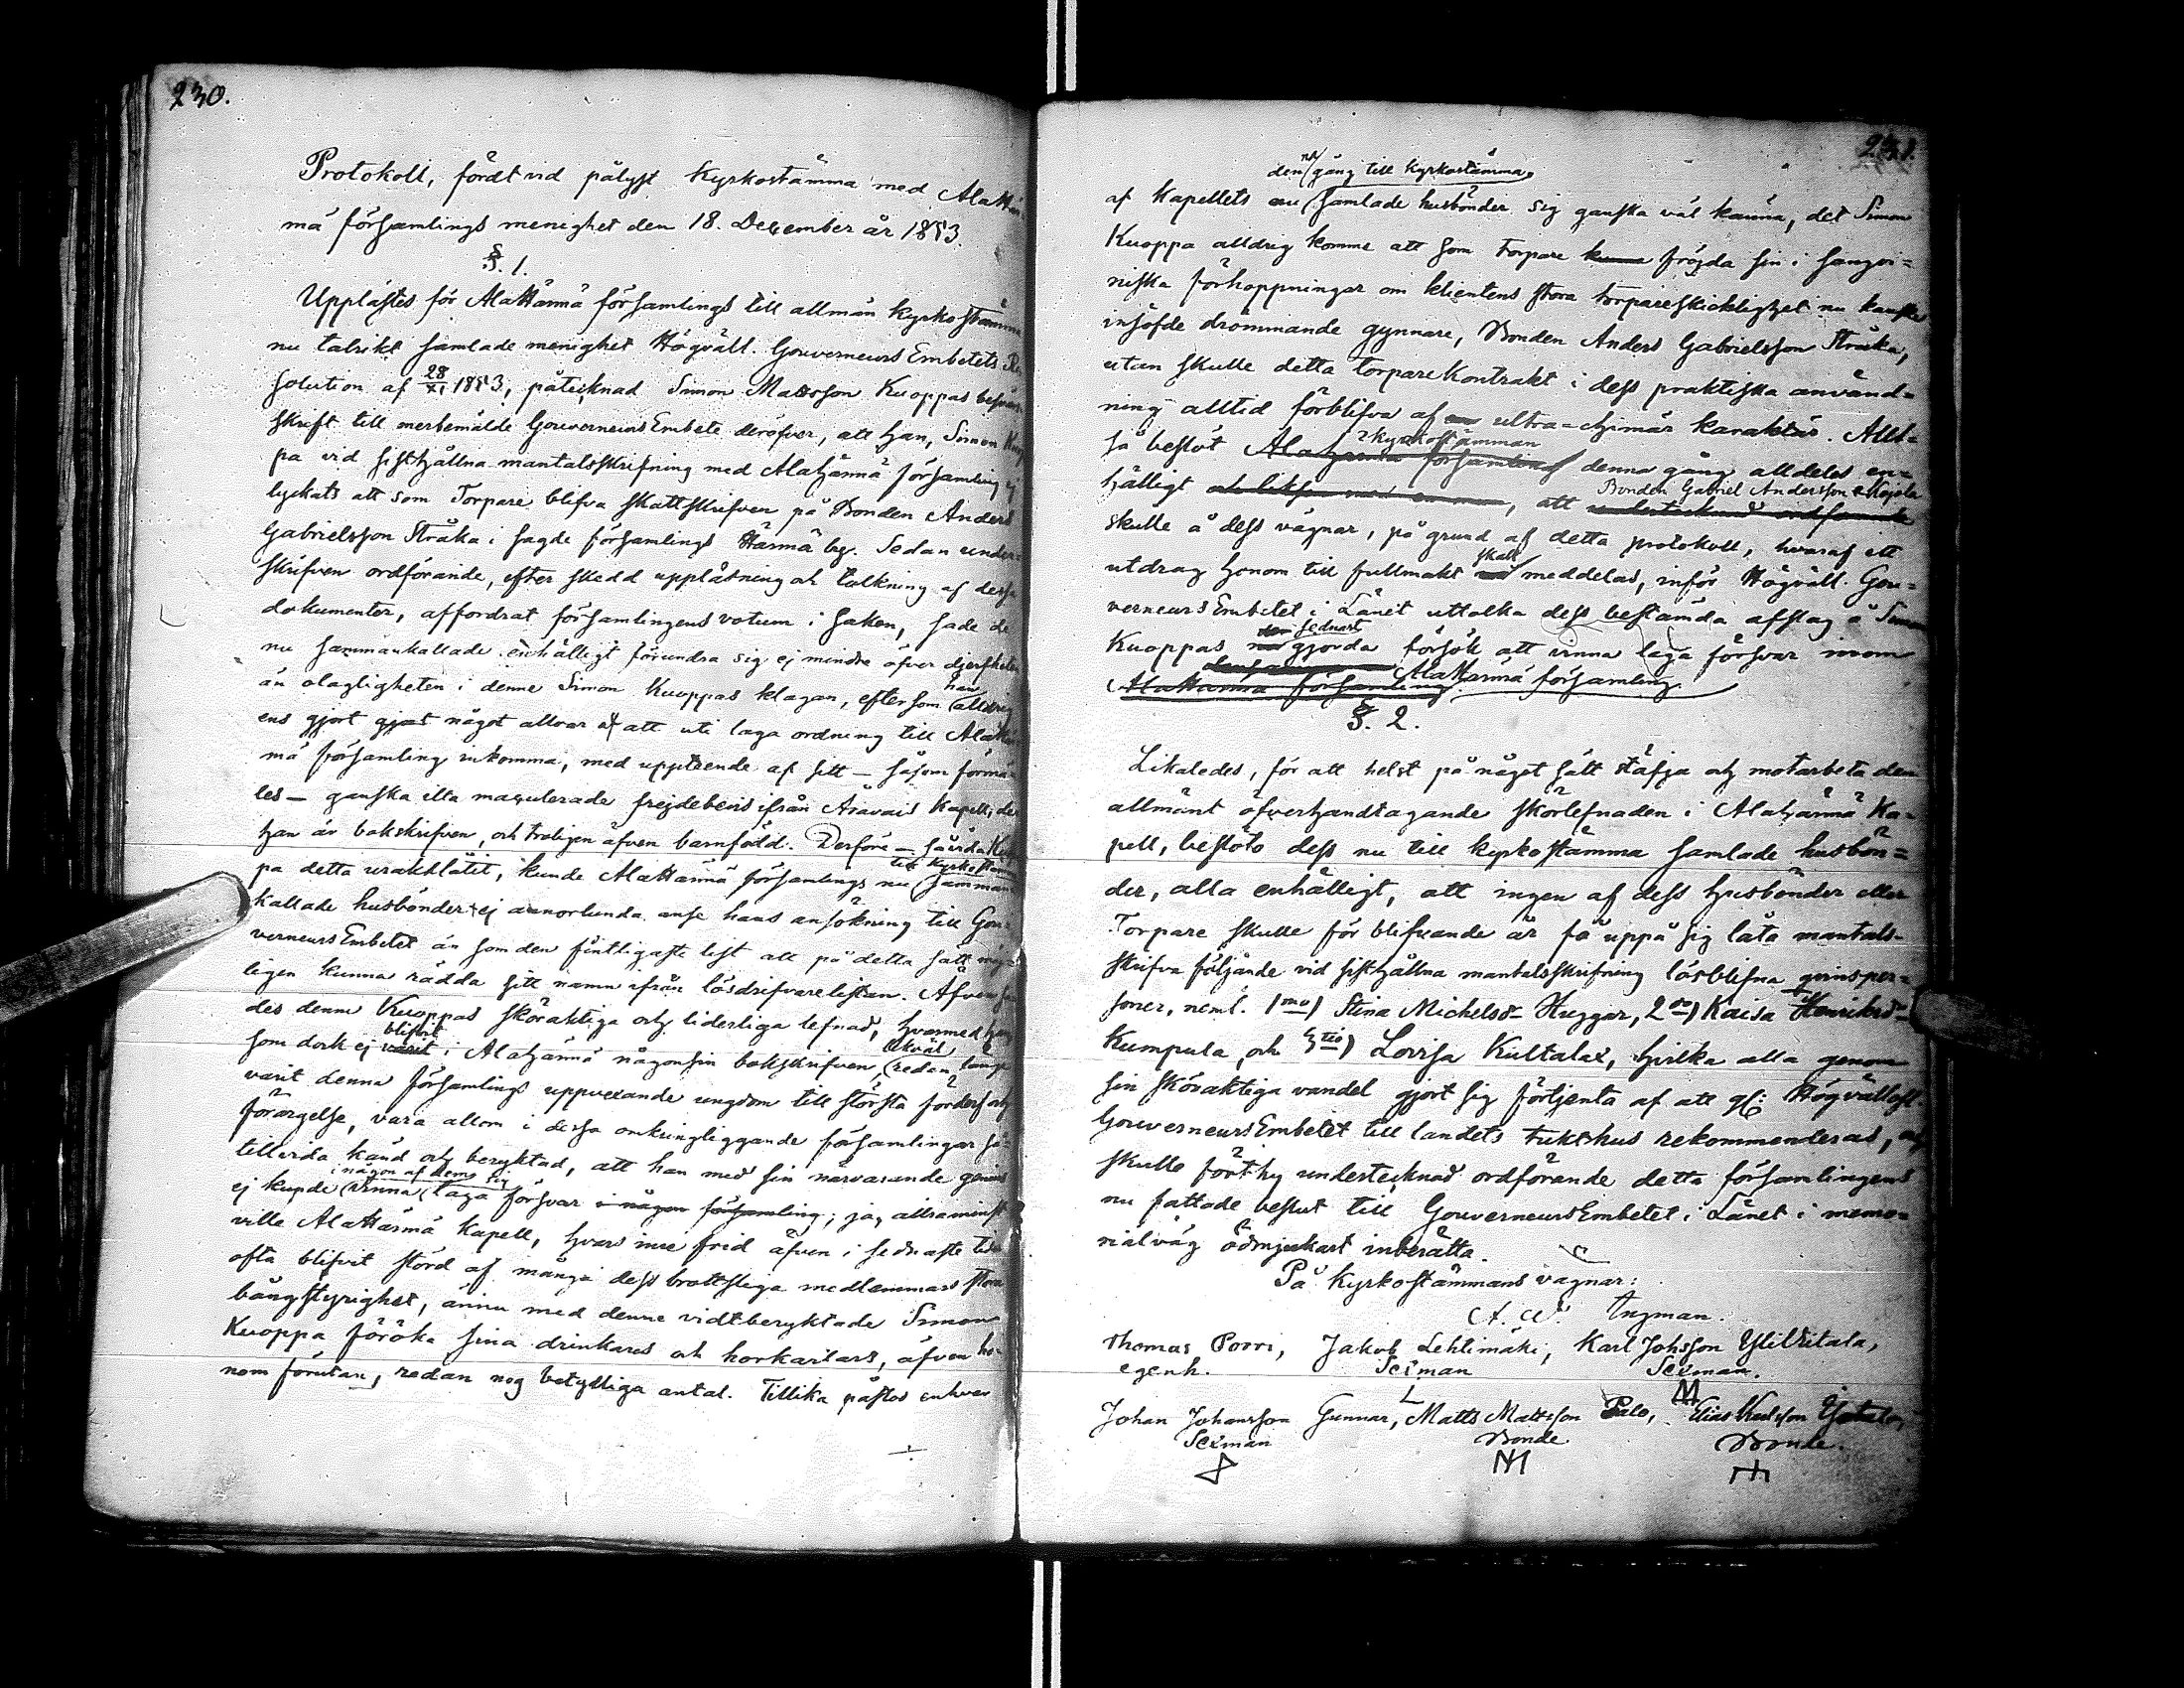 230.
Protokoll, fördt vid pålyst Kyrkostämma med Alahär-
mä församlings menighet den 18. December år 1853.
§. 1.
Upplästes för Alahärmä församlings till allmän kyrkostämma
nu talrikt samlade menighet Högväll. Gouverneurs Embetets Re-
solution af 28/XI 1853, påtecknad Simon Mattsson Kuoppas besvärs-
skrift till merbemälde Gouverneurs Embete deröfver, att han, Simon Kuop-
pa vid sisthållna mantalsskrifning med Alahärmä församling ej
lyckats att som Torpare blifva skattskrifven på Bonden Anders
Gabrielsson Stråka i sagde församlings Härmä by. Sedan under-
skrifven ordförande, efter skedd uppläsning och tolkning af dessa
dokumenter, affordrat församlingens votum i saken, sade de
nu sammankallade enhälligt förundra sig ej mindre öfver djerfheten
än olagligheten i denne Simon Kuoppas klagan, eftersom han alldrig
ens gjort gjort något allvar af att uti laga ordning till Alahär-
mä församling inkomma, med uppteende af sitt – såsom förmä-
les – ganska illa maculerade frejdebevis ifrån Åravais Kapell, der
han är bokskrifven, och troligen äfven barnfödd. Derföre – sårda Kuop-
pa detta urakhlåtit, kunde Alahärmä församlings nu till Kyrkostämma samman-
kallade husbönder ej annorlunda anse hans ansökning till Gou-
verneurs Embetet än som den fintligaste list att på detta sätt möj-
ligen kunna rädda sitt namn ifrån lösdrifvarelistan. Äfvenså
des denne Kuoppas sköraktiga och liderliga lefnad, hvarmed han,
som dock ej varit blifvit i Alahärmä någonsin bokskrifven, likväl redan länge
varit denna församlings uppvexande ungdom till största förderf och
förargelse, vara allom i dessa omkringliggande församlingar så
tillvida känd och beryktad, att han med sin närvarande
ej kunde i någon af dem vinna sig laga försvar i någon församling; ja, allraminst
ville Alahärmä Kapell, hvars inre frid äfven i sednaste tider
ofta blifvit störd af många dess brottsliga medlemmars stora
bångstyrighet, ännu med denne vidtberyktade Simon
Kuoppa föröka sina drinkares och horkarlars, äfven ho-
nom förutan, redan nog betydliga antal. Tillika påstod enhvar
231.
af Kapellets nu den gång till Kyrkostämma samlade husbönder sig ganska väl känna, det Simon
Kuoppa alldrig komme att som Torpare kunna fröjda sin i sangvi-
niska förhoppningar om klientens stora torpareskicklighet nu kanske
insöfde drömmande gynnare, Bonden Anders Gabrielsson Stråka,
utan skulle detta torpare Kontrakt i dess praktiska använd-
ning alltid förblifva af en ultra-chimär karaktär. Allt-
så beslöt Alahärmä församling kyrkostämman denna gång alldeles en-
hälligt och liksom med en mun, att undertecknad ordförande Bonden Gabriel Andersson Kojola
skulle å dess vägnar, på grund af detta protokoll, hvaraf ett
utdrag honom till fullmakt skall meddelas, inför Högväll. Gou-
verneurs Embetet i Länet uttolka dess bestämda afslag å Simon
Kuoppas sednast gjorda försök att vinna laga försvar inom
Alahärmä församling Alahärmä församling.
§. 2.
Likaledes, för att helst på något sätt stäfja och motarbeta den
allmänt öfverhandtagande skörlefnaden i Alahärmä Ka-
pell, beslöto dess nu till kyrkostämma samlade husbön-
der, alla enhälligt, att ingen af dess husbönder eller
Torpare skulle för blifvande år få uppå sig låta mantals-
skrifva följande vid sisthållna mantalsskrifning lösblifna qvinsper-
soner, neml. 1mo) Stina Michelsd. Huggar, 2do) Kaisa Henriksd.
Kumpula, och 3tio) Lovisa Kultalax, hvilka alla genom
sin sköraktiga vandel gjort sig förtjenta af att gh: Högvällofl.
Gouverneurs Embetet till landets tukthus rekommenderas, och
skulle förthy undertecknad ordförande detta församlingens
nu fattade beslut till Gouverneurs Embetet i Länet i memo-
rialväg ödmjukast inberätta.
På Kyrkostämmans vägnar:
A. W. Ingman.
Thomas Porri, Jakob Lehtimäki, Karl Johsson Yliviitala,
egenh. Sexman Sexman.
Johan Johansson Gunnar, Matts Mattsson Palo, Elias
Sexman Bonde Bonde.